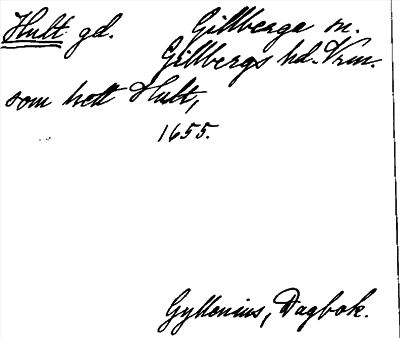 Hult gd. Gillberga sn.
Gillbergs hd. Vrm.
som hett Hult,
1655.
Gyllenius, Dagbok.